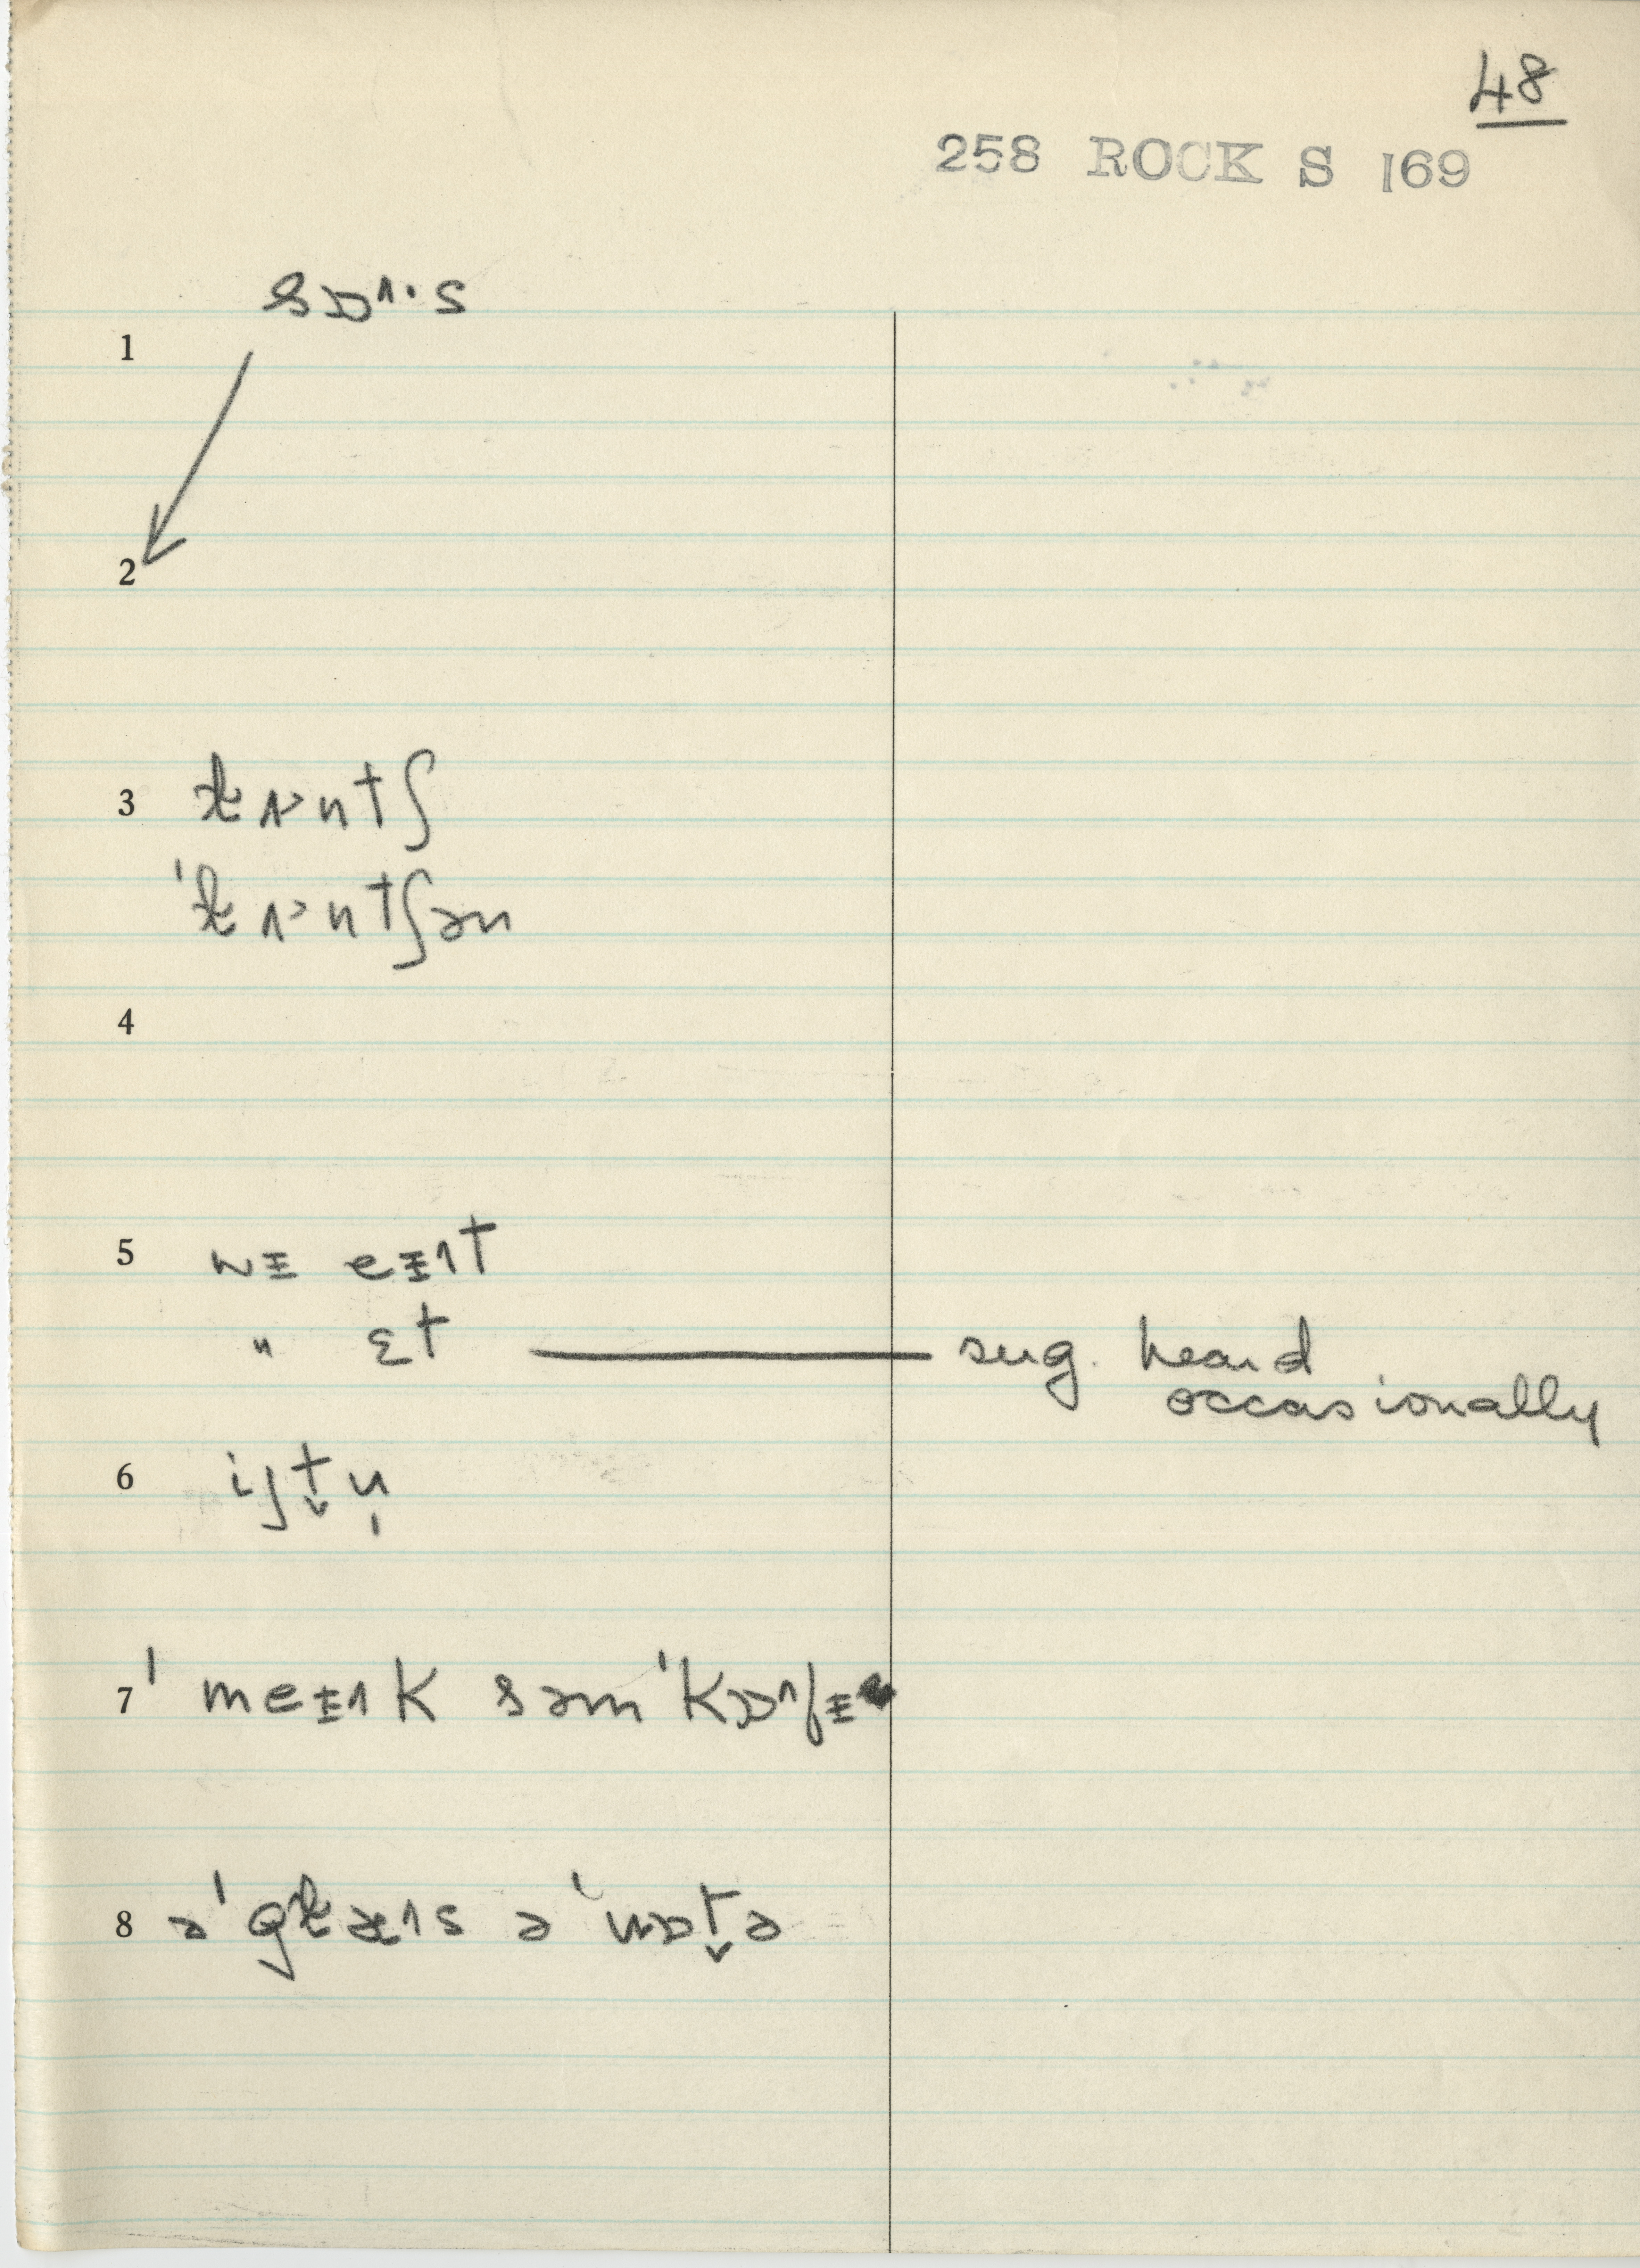 48
258 ROCK S 169
sɒ˄·s
1
2
3 ɫʌ˃ntʃ
ˈɫʌ˃ntʃən
4
5 wɪ eɪ˄t
" ɛt — sug. heard
occasionally
6 iʃt̬n̩
7 ˈmeɪ˄k səmˈkɒ˄fɪ
8 əˈgɫæ˄s əˈwɒt̬ə